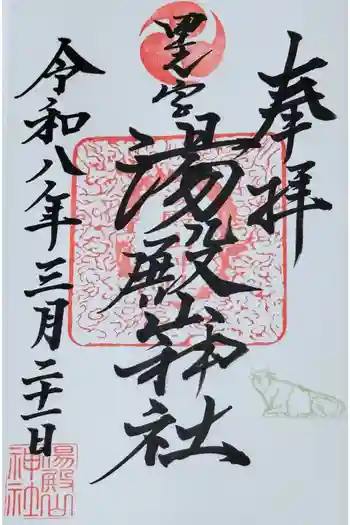 奉拝
黒字
湯殿山神社
令和八年三月二十一日
湯殿山
神社